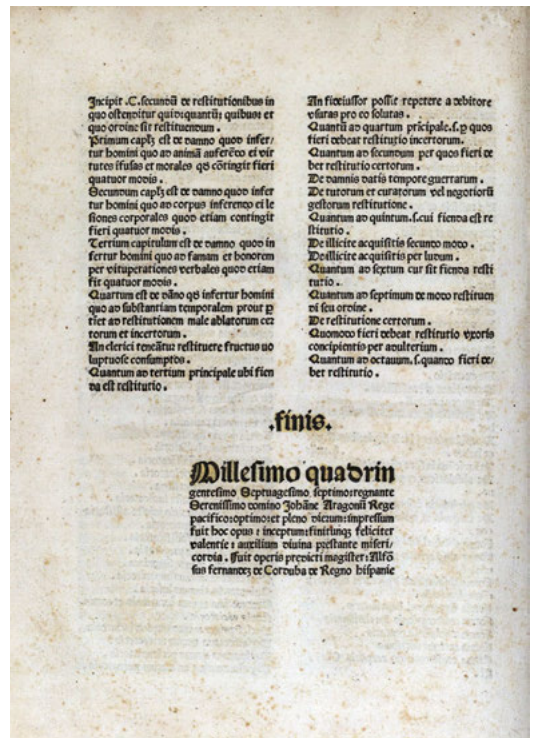 Incipit .C. secundū de restitutionibus in
quo ostenditur quid: quantū: quibus: et
quo ordine sit restituendum .
Primum capłȝ est de damno quod infer/
tur homini quo ad animā auferēdo ei vir
tutes īfusas et morales qđ cōtingit fieri
quatuor modis .
Secundum capłȝ est de damno quod infer
tur homini quo ad corpus inferendo ei le
siones corporales quod etiam contingit
fieri quatuor modis .
Tertium capitulum est de damno quod in
fertur homini quo ad famam et honorem
per vituperationes verbales quod etiam
fit quatuor modis .
Quartum est de dāno qđ infertur homini
quo ad substantiam temporalem prout ꝑ
tiet ad restitutionem male ablatorum cer
torum et incertorum .
An clerici teneātur restituere fructus uo
luptuose consumptos .
Quantum ad tertium principale ubi fien
da est restitutio .
An fideiussor possit repetere a debitore
vsuras pro eo solutas .
Quantū ad quartum prīcipale .s. ꝑ quos
fieri debeat restitutio incertorum .
Quantum ad secundum per quos fieri de
bet restitutio certorum .
De damnis datis tempore guerrarum .
De tutorum et curatorum vel negotiorū
gestorum restitutione .
Quantum ad quintum .s. cui fienda est re
stitutio .
De illicite acquisitis secundo modo .
De illicite acquisitis per ludum .
Quantum ad sextum cur sit fienda resti
tutio .
Quantum ad septimum de modo restituen
di seu ordine .
De restitutione certorum .
Quomodo fieri debeat restitutio vxoris
concipientis per adulterium .
Quantum ad octauum .s. quando fieri de/
bet restitutio .
.finis.
Millesimo quadrin
gentesimo Septuagesimo septimo: regnante
Serenissimo domino Johāne Aragonū Rege
pacifico: optimo: et pleno dierum: impressum
fuit hoc opus : inceptum: finitumqȝ feliciter
valentie : auxilium diuina prestante miseri/
cordia . Fuit operis predicti magister: Alfō
sus fernandeȝ de Corduba de Regno hispanie